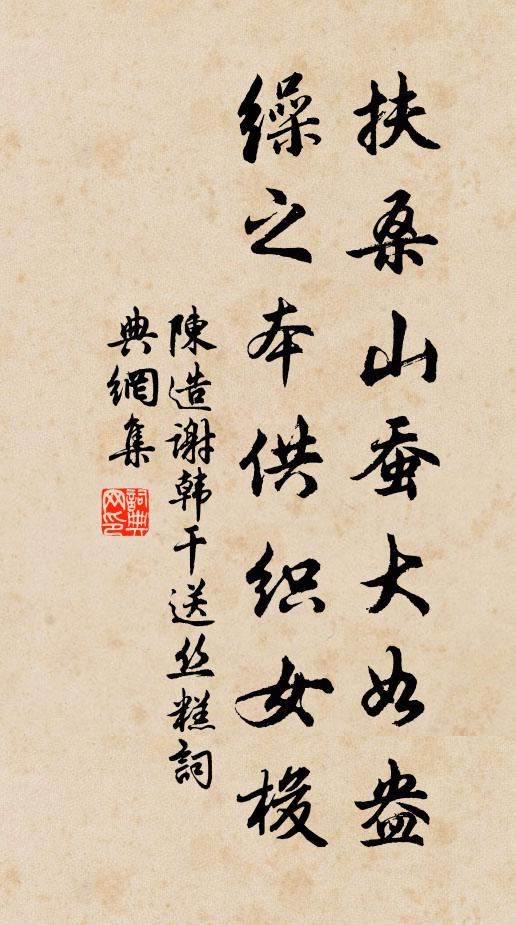 扶桑山蚕大如盎
繰之本供织女梭
陳造谢韩干送丝糕詞
典網集
詞典網印